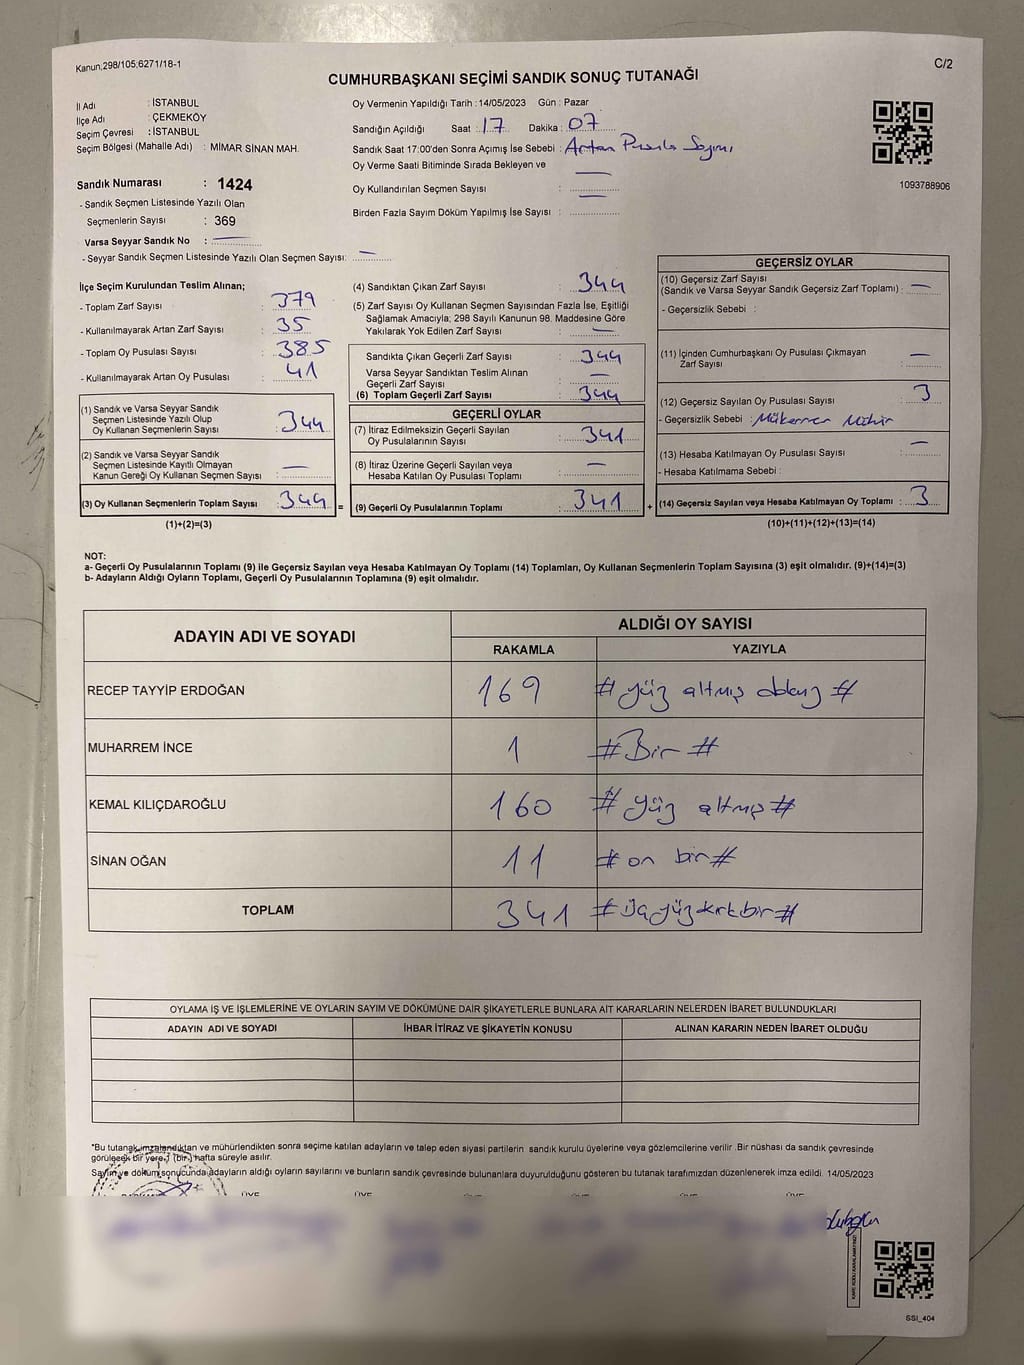 Kanun;298/105;6271/18-1
C/2
CUMHURBAŞKANI SEÇİMİ SANDIK SONUÇ TUTANAĞI
İl Adı : İSTANBUL
İlçe Adı : ÇEKMEKÖY
Seçim Çevresi : İSTANBUL
Seçim Bölgesi (Mahalle Adı) : MİMAR SİNAN MAH.
Oy Vermenin Yapıldığı Tarih : 14/05/2023 Gün : Pazar
Sandığın Açıldığı Saat : 17 Dakika : 07
Sandık Saat 17:00'den Sonra Açımış İse Sebebi : Artan Pusula Sayımı
Oy Verme Saati Bitiminde Sırada Bekleyen ve
Oy Kullandırılan Seçmen Sayısı : —
Birden Fazla Sayım Döküm Yapılmış İse Sayısı : —
1093788906
Sandık Numarası : 1424
- Sandık Seçmen Listesinde Yazılı Olan
Seçmenlerin Sayısı : 369
Varsa Seyyar Sandık No : —
- Seyyar Sandık Seçmen Listesinde Yazılı Olan Seçmen Sayısı: —
İlçe Seçim Kurulundan Teslim Alınan;
- Toplam Zarf Sayısı : 379
- Kullanılmayarak Artan Zarf Sayısı : 35
- Toplam Oy Pusulası Sayısı : 385
- Kullanılmayarak Artan Oy Pusulası : 41
(1) Sandık ve Varsa Seyyar Sandık
Seçmen Listesinde Yazılı Olup
Oy Kullanan Seçmenlerin Sayısı : 344
(2) Sandık ve Varsa Seyyar Sandık
Seçmen Listesinde Kayıtlı Olmayan
Kanun Gereği Oy Kullanan Seçmen Sayısı : —
(3) Oy Kullanan Seçmenlerin Toplam Sayısı : 344
(1)+(2)=(3)
=
(4) Sandıktan Çıkan Zarf Sayısı : 344
(5) Zarf Sayısı Oy Kullanan Seçmen Sayısından Fazla İse, Eşitliği
Sağlamak Amacıyla; 298 Sayılı Kanunun 98. Maddesine Göre
Yakılarak Yok Edilen Zarf Sayısı : —
Sandıkta Çıkan Geçerli Zarf Sayısı : 344
Varsa Seyyar Sandıktan Teslim Alınan
Geçerli Zarf Sayısı : —
(6) Toplam Geçerli Zarf Sayısı : 344
GEÇERLİ OYLAR
(7) İtiraz Edilmeksizin Geçerli Sayılan
Oy Pusulalarının Sayısı : 341
(8) İtiraz Üzerine Geçerli Sayılan veya
Hesaba Katılan Oy Pusulası Toplamı : —
(9) Geçerli Oy Pusulalarının Toplamı : 341
+
GEÇERSİZ OYLAR
(10) Geçersiz Zarf Sayısı
(Sandık ve Varsa Seyyar Sandık Geçersiz Zarf Toplamı) : —
- Geçersizlik Sebebi :
(11) İçinden Cumhurbaşkanı Oy Pusulası Çıkmayan
Zarf Sayısı : —
(12) Geçersiz Sayılan Oy Pusulası Sayısı : 3
- Geçersizlik Sebebi : Mükerrer Mühür
(13) Hesaba Katılmayan Oy Pusulası Sayısı : —
- Hesaba Katılmama Sebebi :
(14) Geçersiz Sayılan veya Hesaba Katılmayan Oy Toplamı : 3
(10)+(11)+(12)+(13)=(14)
NOT:
a- Geçerli Oy Pusulalarının Toplamı (9) ile Geçersiz Sayılan veya Hesaba Katılmayan Oy Toplamı (14) Toplamları, Oy Kullanan Seçmenlerin Toplam Sayısına (3) eşit olmalıdır. (9)+(14)=(3)
b- Adayların Aldığı Oyların Toplamı, Geçerli Oy Pusulalarının Toplamına (9) eşit olmalıdır.
ADAYIN ADI VE SOYADI
ALDIĞI OY SAYISI
RAKAMLA YAZIYLA
RECEP TAYYİP ERDOĞAN 169 # yüz altmış dokuz #
MUHARREM İNCE 1 # Bir #
KEMAL KILIÇDAROĞLU 160 # yüz altmış #
SİNAN OĞAN 11 # on bir #
TOPLAM 341 # üçyüzkırkbir #
OYLAMA İŞ VE İŞLEMLERİNE VE OYLARIN SAYIM VE DÖKÜMÜNE DAİR ŞİKAYETLERLE BUNLARA AİT KARARLARIN NELERDEN İBARET BULUNDUKLARI
ADAYIN ADI VE SOYADI İHBAR İTİRAZ VE ŞİKAYETİN KONUSU ALINAN KARARIN NEDEN İBARET OLDUĞU
*Bu tutanak imzalandıktan ve mühürlendikten sonra seçime katılan adayların ve talep eden siyasi partilerin sandık kurulu üyelerine veya gözlemcilerine verilir .Bir nüshası da sandık çevresinde
görülecek bir yere 1 (bir) hafta süreyle asılır.
Sayım ve döküm sonucunda adayların aldığı oyların sayılarını ve bunların sandık çevresinde bulunanlara duyurulduğunu gösteren bu tutanak tarafımızdan düzenlenerek imza edildi. 14/05/2023
ÜYE ÜYE ÜYE ÜYE ÜYE ÜYE
SSI_404